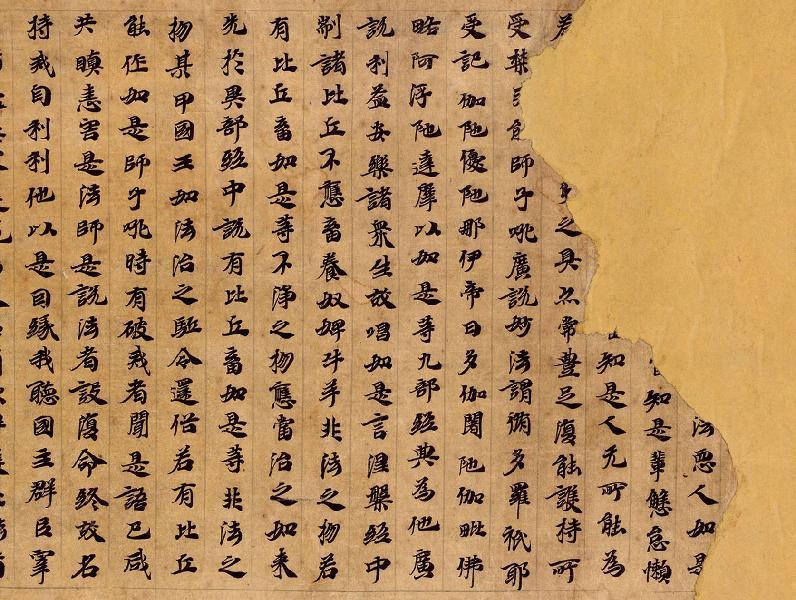 法惡人如是
知是輩懈怠懶
知是人无所能為
之具亦常豊足復能護持所
受禁師子吼廣說妙法謂脩多羅祇耶
受記伽陁優陁那伊帝曰多伽闍陁伽毗佛
略阿浮陁達摩以如是等九部經典為他廣
說利益安樂諸衆生故唱如是言涅槃經中
制諸比丘不應畜養奴婢牛羊非法之物若
有比丘畜如是等不淨之物應當治之如来
先於異部經中說有比丘畜如是等非法之
物某甲國王如法治之駈令還俗若有比丘
能作如是師子吼時有破戒者聞是語已咸
共瞋恚害是法師是說法者設復命終故名
持戒自利利他以是因緣我聽國主群臣宰